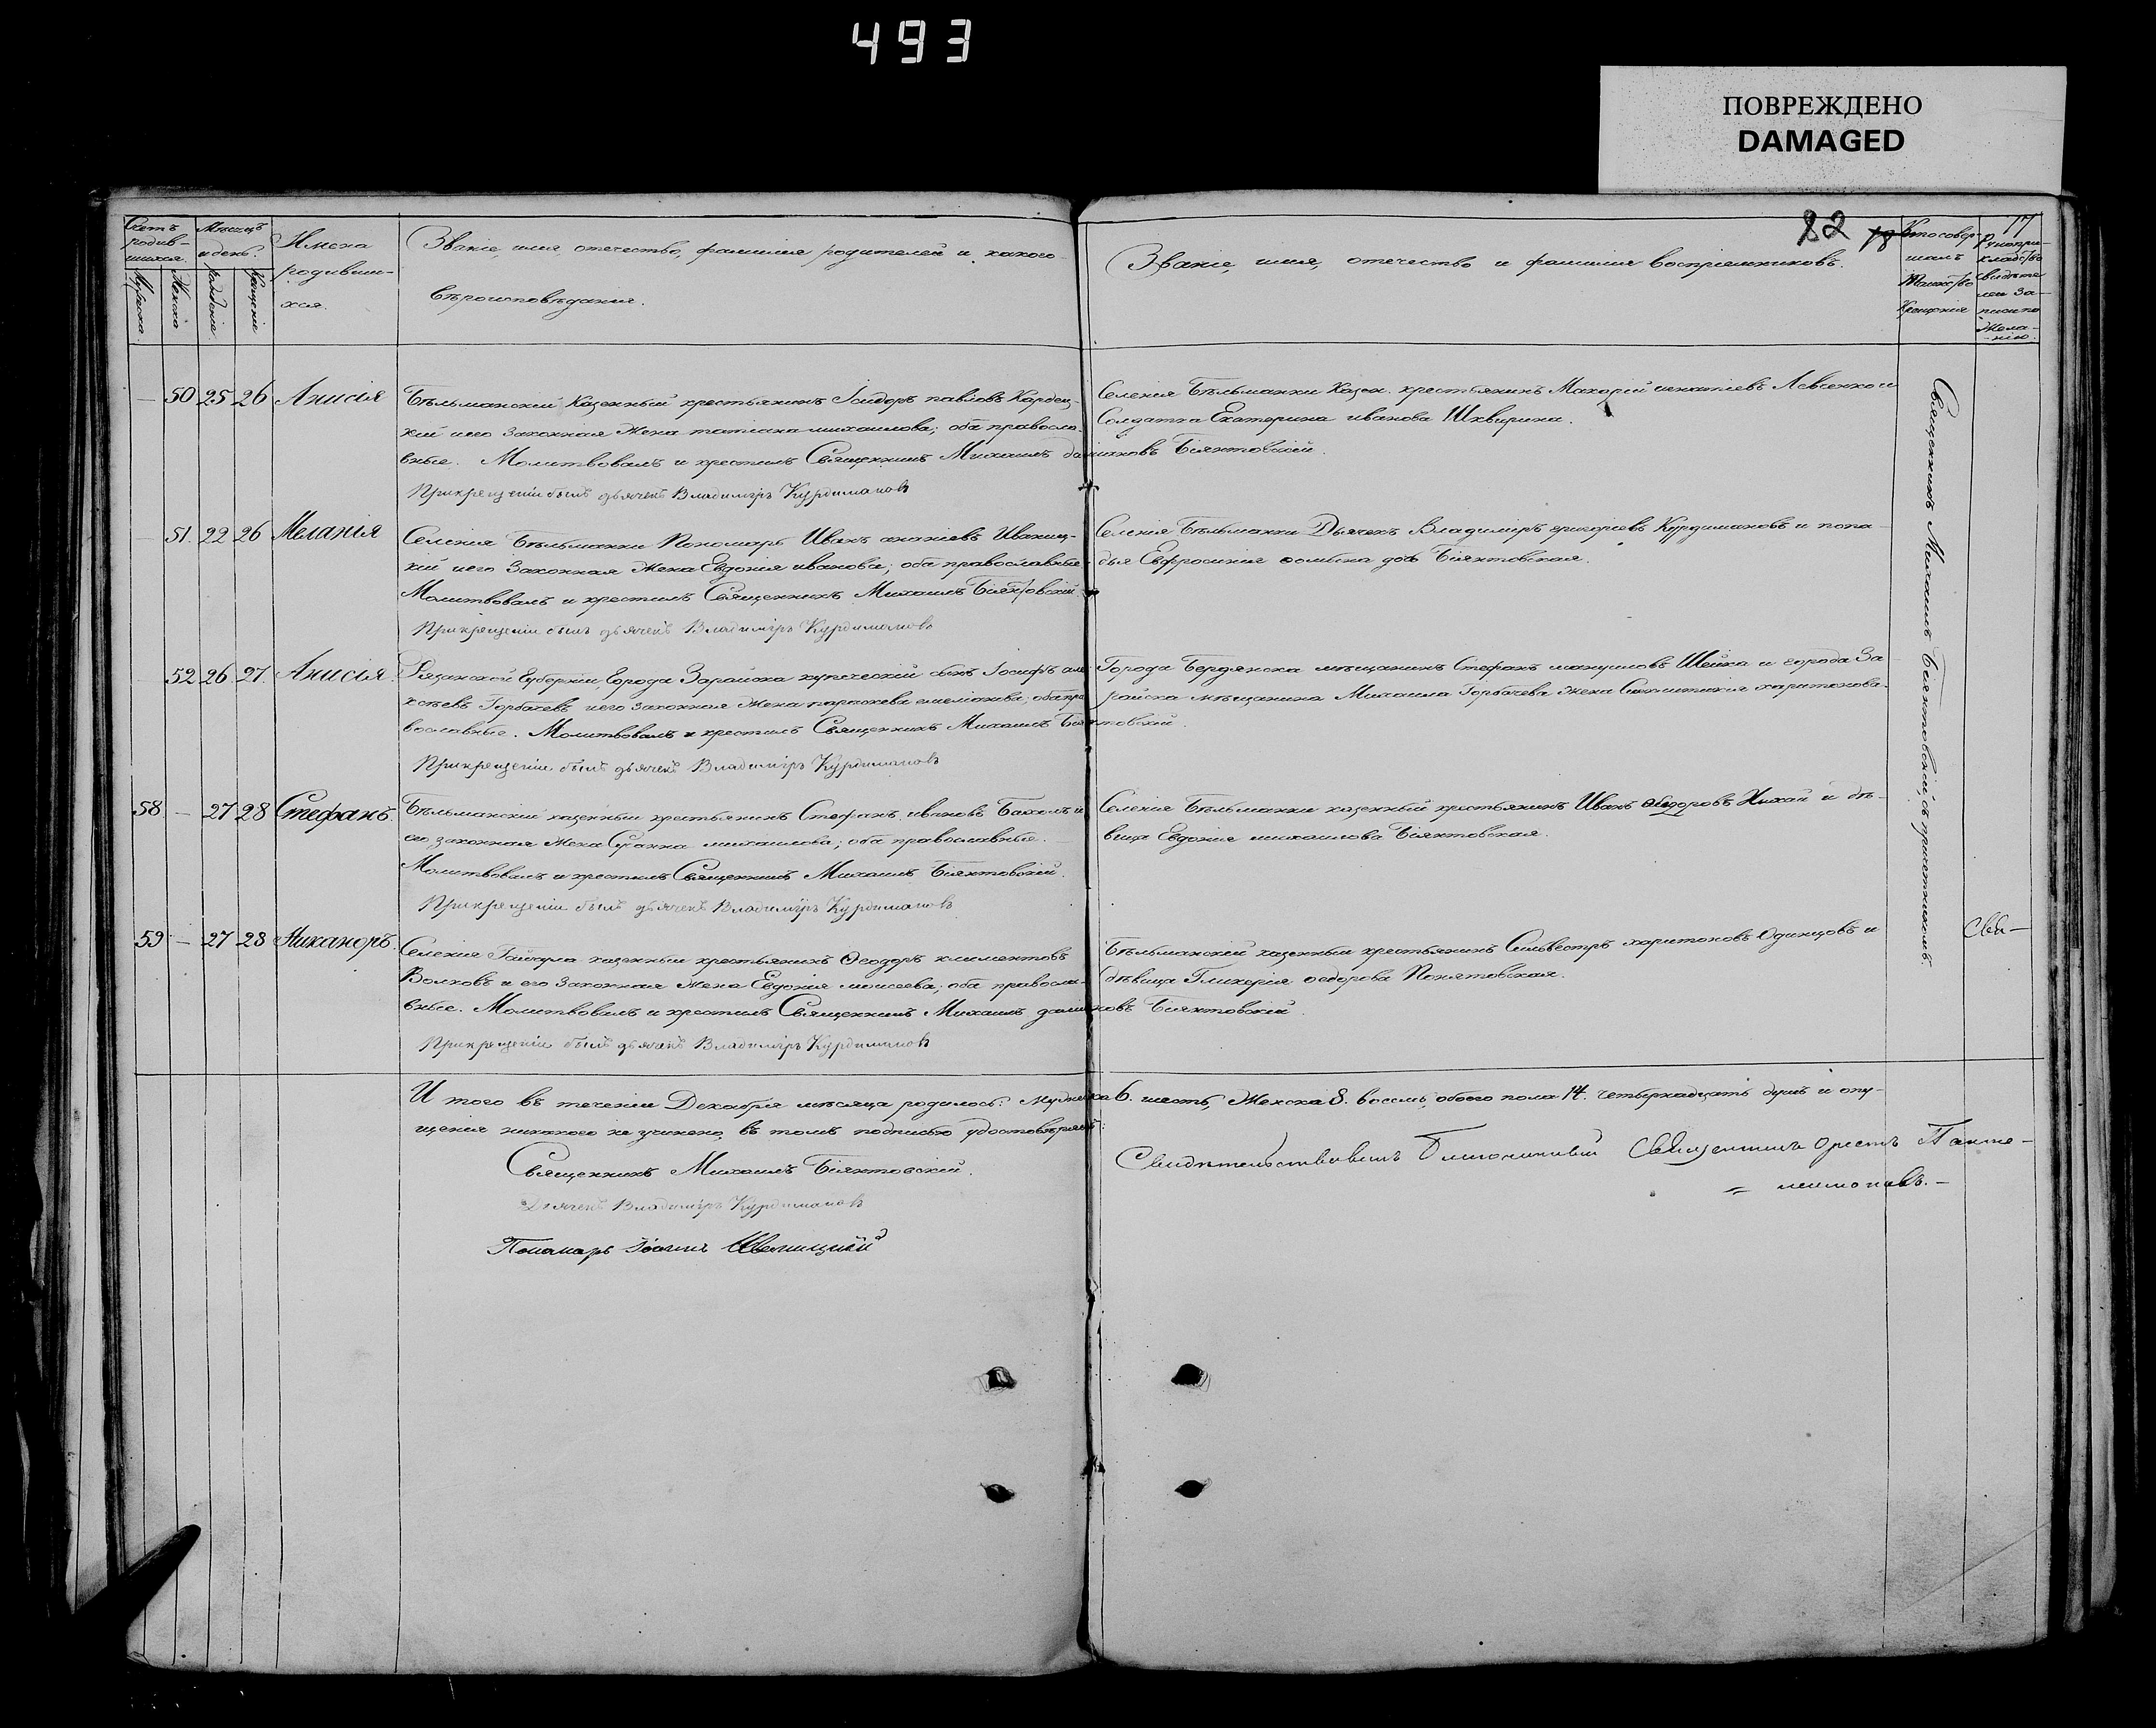 493
ПОВРЕЖДЕНО
DAMAGED
82
17
Счетъ родив-шихся.
Мужеска
Женска
Мѣсяцъ и день.
рождѣнія
Крещенія
Имена родивши-хся.
Званіе, имя, отечество, фамилия родителей и какого
вѣроисповѣданія.
Званіе, имя, отечество и фамилия воспріемниковъ.
Кто совер-шалъ Таинство Крещенія
Рукопри-кладство свидѣте лей записи по жела-нію.
— 50 25 26 Анисія
Бѣльманскій Казенный крестьянинъ Ісидоръ павловъ Кардец-
кій и его законная Жена татіана михаилова; оба правосла-
вные. Молитвовалъ и крестилъ Священникъ Михаилъ даниковъ Біянтовскій.
При крещеніи былъ дьячекъ Владиміръ Курдимановъ
Селенія Бѣльманки Казен. крестьянинъ Макарій игнатіевъ Левченко и
Солдатка Екатерина иванова Шквирина.
— 51. 22 26 Меланія
Селенія Бѣльманки Пономарь Иванъ ананіевъ Иваниц-
кій и его Законная Жена Евдокия иванова; оба православные
Молитвовалъ и крестилъ Священникъ Михаилъ Біянтовскій.
При крещеніи былъ дьячекъ Владиміръ Курдимановъ
Селенія Бѣльманки Дьячекъ Владиміръ григоріевъ Курдимановъ и попа-
дья Евфросинія Біянтовская.
— 52 26 27. Анисія.
Рязанской Губерніи, Города Зарайска купеческій сынъ Іосифъ але-
ксѣевъ Горбачевъ и его законная Жена параскева емеліанова; оба пра
вославные. Молитвовалъ и крестилъ Священникъ Михаилъ Біянтовскій.
При крещеніи былъ дьячекъ Владиміръ Курдимановъ
Города Бердянска мѣщанинъ Стефанъ мануиловъ Шейка и города За
райска мѣщанина Михаила Горбачева Жена харитонова.
58 — 27 28 Стефанъ.
Бѣльманскій казенный крестьянинъ Стефанъ ивановъ и
его законная Жена Сусанна михаилова; оба православные.
Молитвовалъ и крестилъ Священникъ Михаилъ Біянтовскій.
При крещеніи былъ дьячекъ Владиміръ Курдимановъ
Селенія Бѣльманки казенный крестьянинъ Иванъ и дѣ-
вица Евдокія михаилова Біянтовская.
59 — 27 28 Никаноръ.
Селенія Гайчула казенный крестьянинъ Ѳеодоръ климентовъ
Волковъ и его Законная Жена Евдокія моисеева; оба правосла-
вные. Молитвовалъ и крестилъ Священникъ Михаилъ даниковъ Біянтовскій.
При крещеніи былъ дьячекъ Владиміръ Курдимановъ
Бѣльманскій казенный крестьянинъ Сильвестръ харитоновъ Одинцовъ и
дѣвица Гликерія ѳедорова Понятовская.
Священникъ Михаилъ Біянтовскій, съ причетникомъ.
Сви—
И того въ теченіи Декабря мѣсяца родилось: Мужеска 6. шесть, Женска 8. восемь, обоего пола 14. четырнадцать душъ и опу-
щенія никакого не учинено, въ томъ подписью удостовѣряемъ:
Священникъ Михаилъ Біянтовскій.
Дьячекъ Владиміръ Курдимановъ
Пономарь Іоаннъ Иваницкій
Свидѣтельствовалъ Благочинный Священникъ Орестъ Панте-
= леимоновъ. —